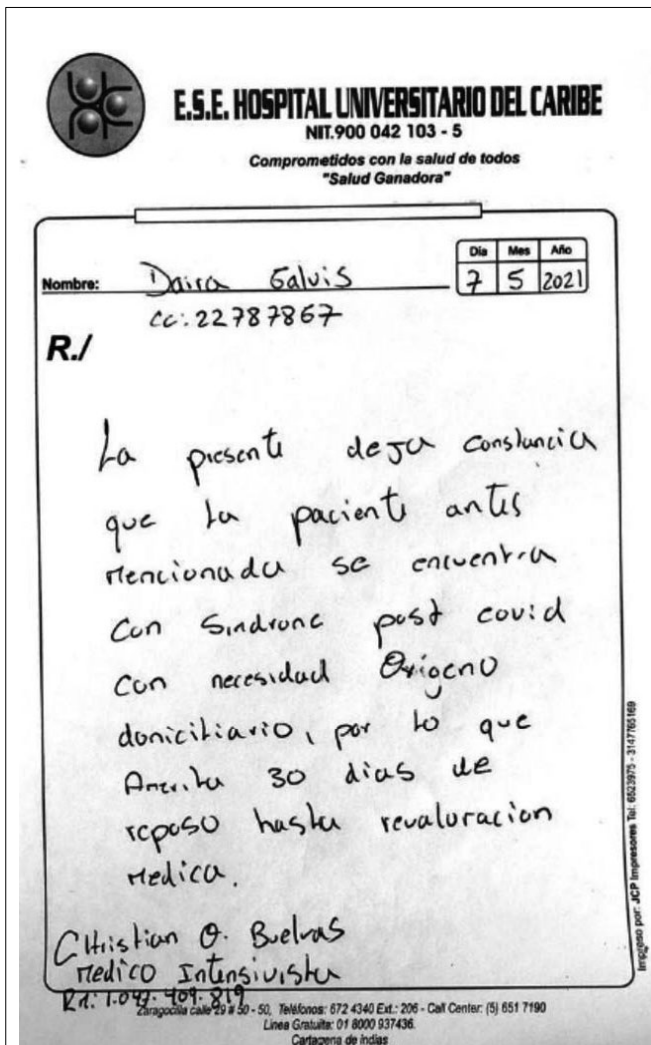 E.S.E. HOSPITAL UNIVERSITARIO DEL CARIBE
NIT.900 042 103 - 5
Comprometidos con la salud de todos
"Salud Ganadora"
Dia Mes Año
7 5 2021
Nombre: Daira Galvis
cc: 22787867
R./
La presente deja constancia
que la paciente antes
mencionada se encuentra
con Sindrome post covid
con necesidad Oxigeno
domiciliario, por lo que
Amerita 30 dias de
reposo hasta revaluracion
Medica.
Christian O. Buelvas
Medico Intensivista
RM: 1.047.409.819
Zaragocilla calle 29 # 50 - 50, Teléfonos: 672 4340 Ext.: 206 - Call Center: (5) 651 7190
Linea Gratuita: 01 8000 937436.
Cartagena de indias
Impreso por: JCP Impresores Tel: 6523975 - 3147765169